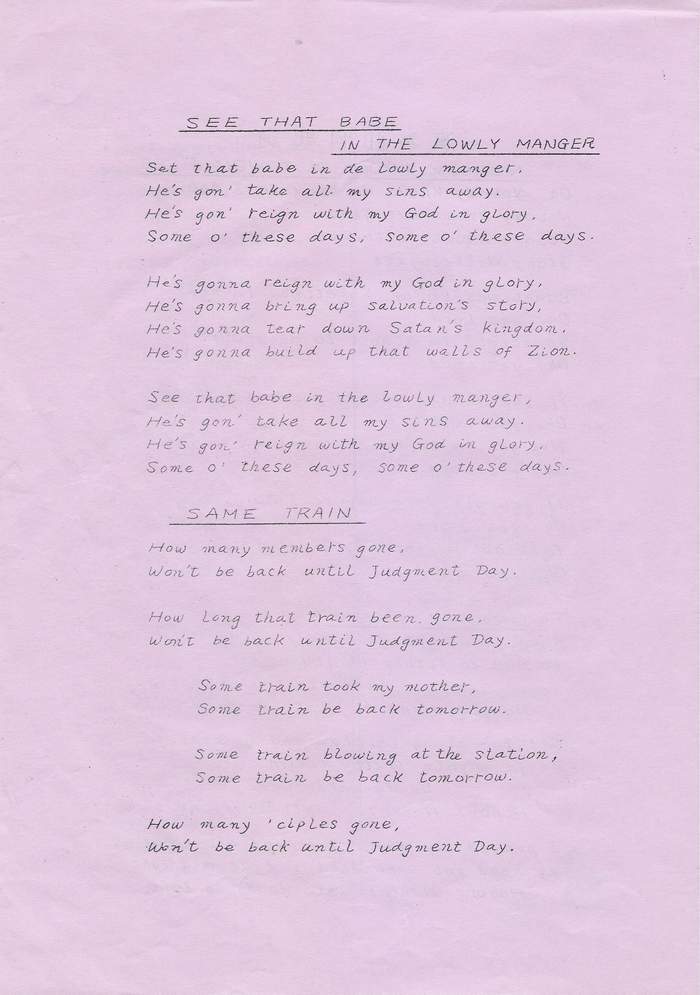 SEE THAT BABE
IN THE LOWLY MANGER
Set that babe in de lowly manger,
He's gon' take all my sins away.
He's gon' reign with my God in glory,
Some o' these days, some o' these days.
He's gonna reign with my God in glory,
He's gonna bring up salvation's story,
He's gonna tear down Satan's kingdom,
He's gonna build up that walls of Zion.
See that babe in the lowly manger,
He's gon' take all my sins away.
He's gon' reign with my God in glory,
Some o' these days, some o' these days.
SAME TRAIN
How many members gone,
Won't be back until Judgment Day.
How long that train been gone,
Won't be back until Judgment Day.
Some train took my mother,
Some train be back tomorrow.
Some train blowing at the station,
Some train be back tomorrow.
How many 'ciples gone,
Won't be back until Judgment Day.